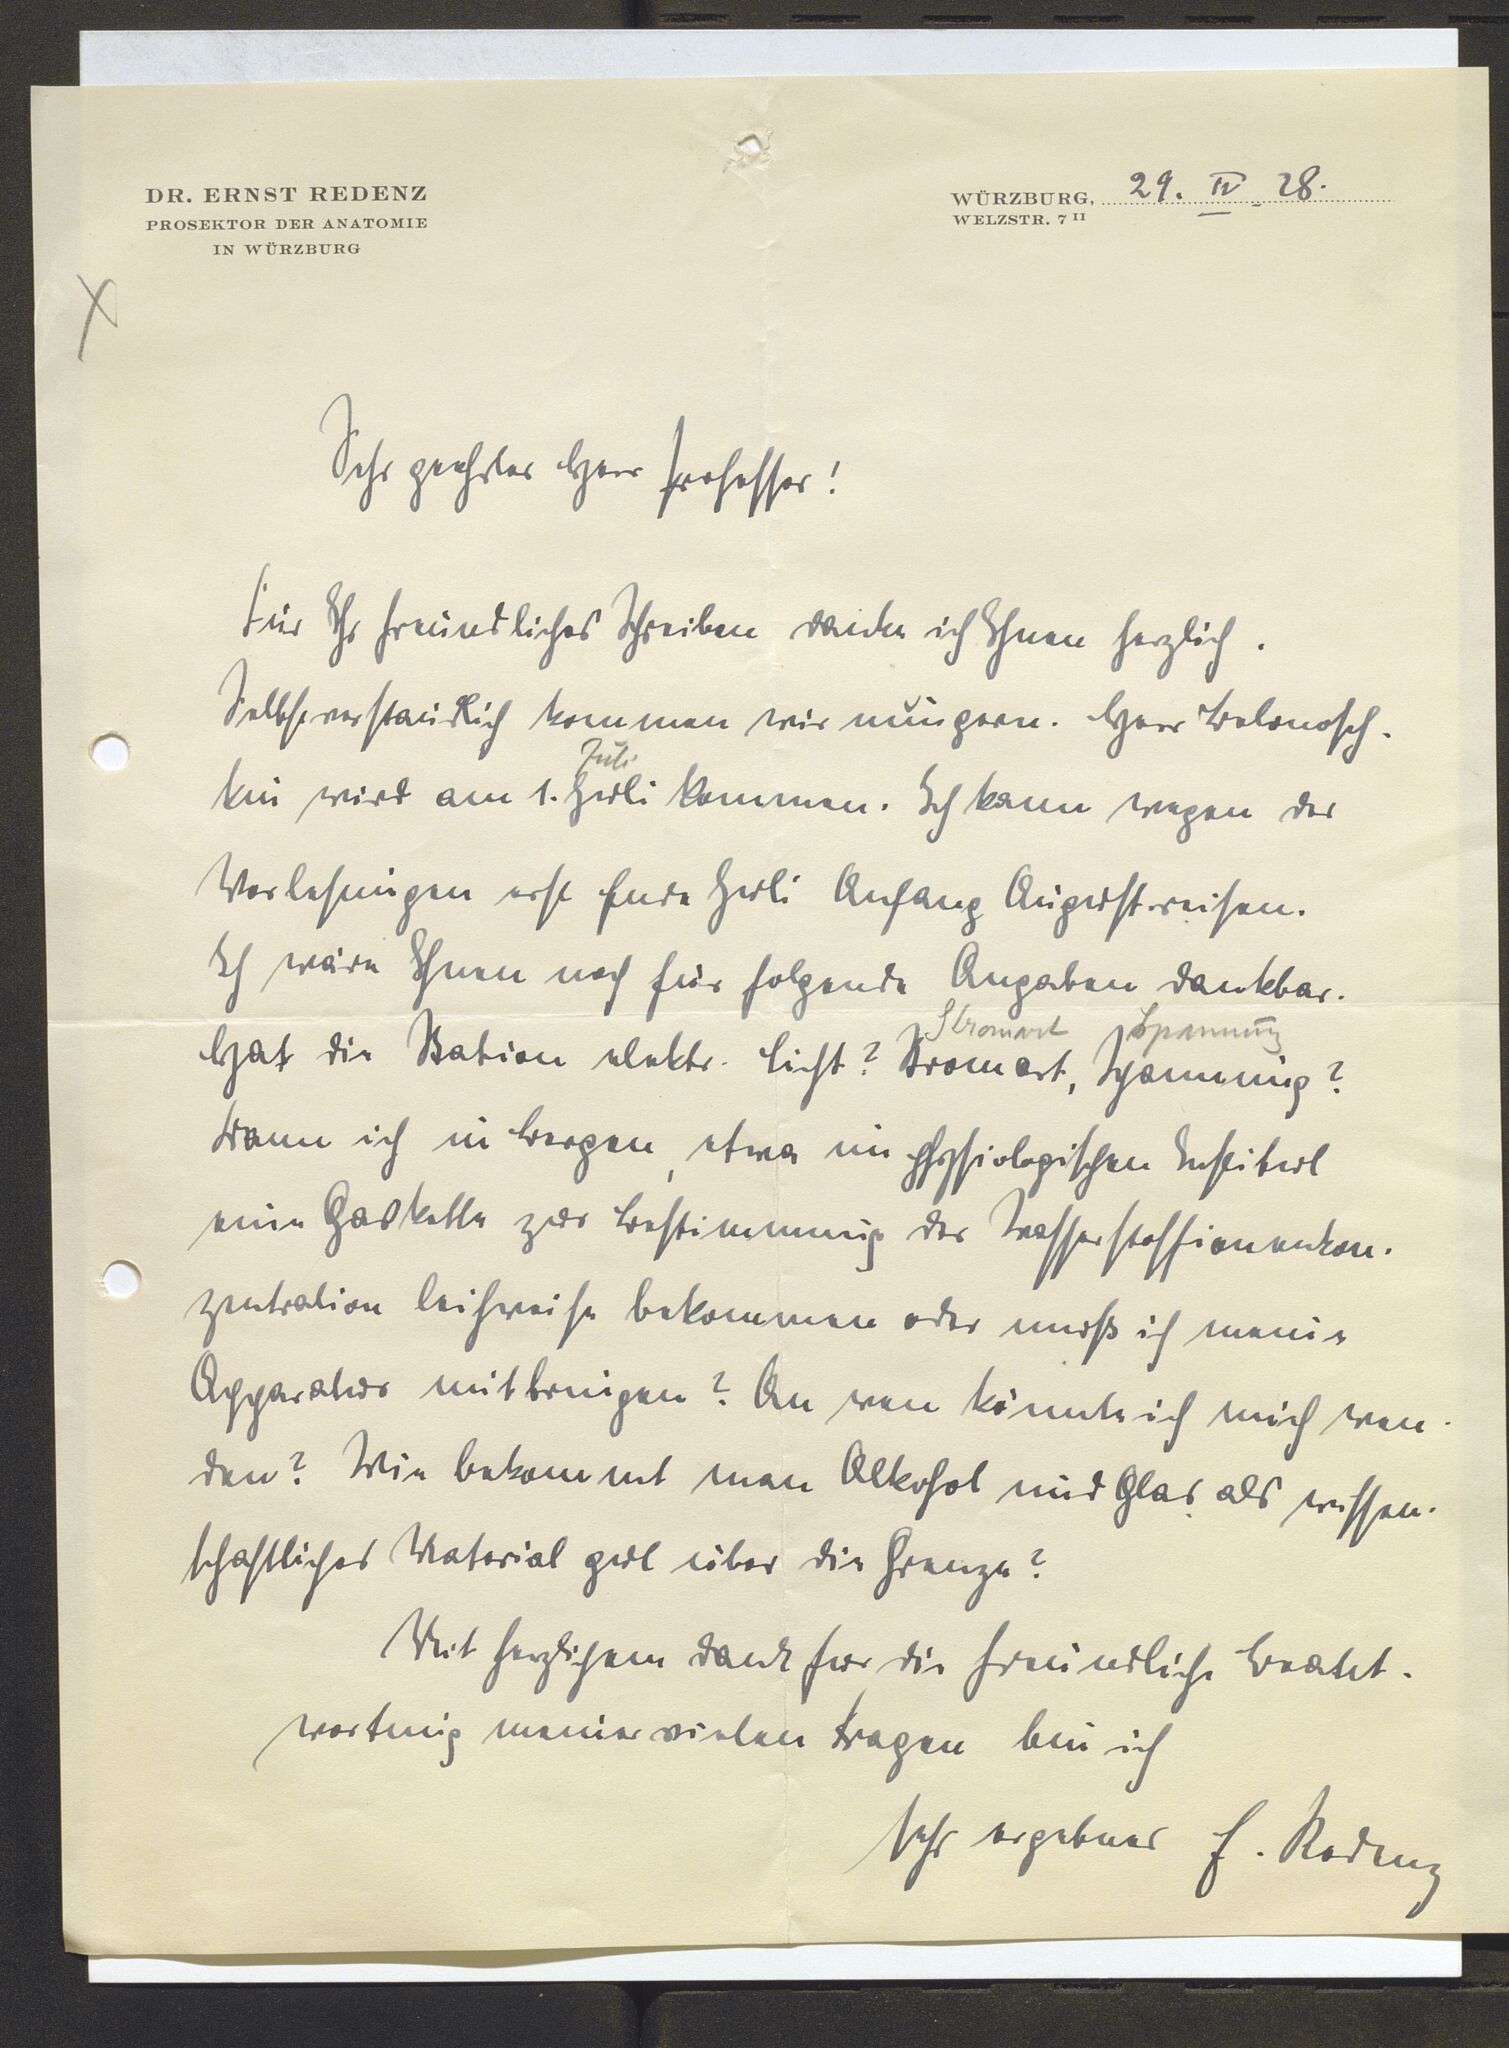 DR. ERNST REDENZ
PROSEKTOR DER ANATOMIE
IN WÜRZBURG
WÜRZBURG, 29. IV. 28.
WELZSTR. 7 II
Sehr geehrter Herr Professor!
Für Ihr freundliches Schreiben danke ich Ihnen herzlich.
Selbstverständlich kommen wir nun gern. Herr Belonosch-
Juli
kin wird am 1. Juli kommen. Ich kann wegen der
Vorlesungen erst Ende Juli Anfang August reisen.
Ich wäre Ihnen noch für folgende Angaben dankbar.
Stromart Spannung
Hat die Station elektr. Licht? Stromart, Spannung?
Kann ich in Bergen, etwa im physiologischen Institut
eine Gaskette zur Bestimmung der Wasserstoffionenkon-
zentration leihweise bekommen oder muß ich meine
Apparatur mitbringen? An wen könnte ich mich wen-
den? Wie bekommt man Alkohol und Glas als wissen-
schaftliches Material gut über die Grenze?
Mit herzlichem Dank für die freundliche Beant-
wortung meiner vielen Fragen bin ich
sehr ergebner E. Redenz